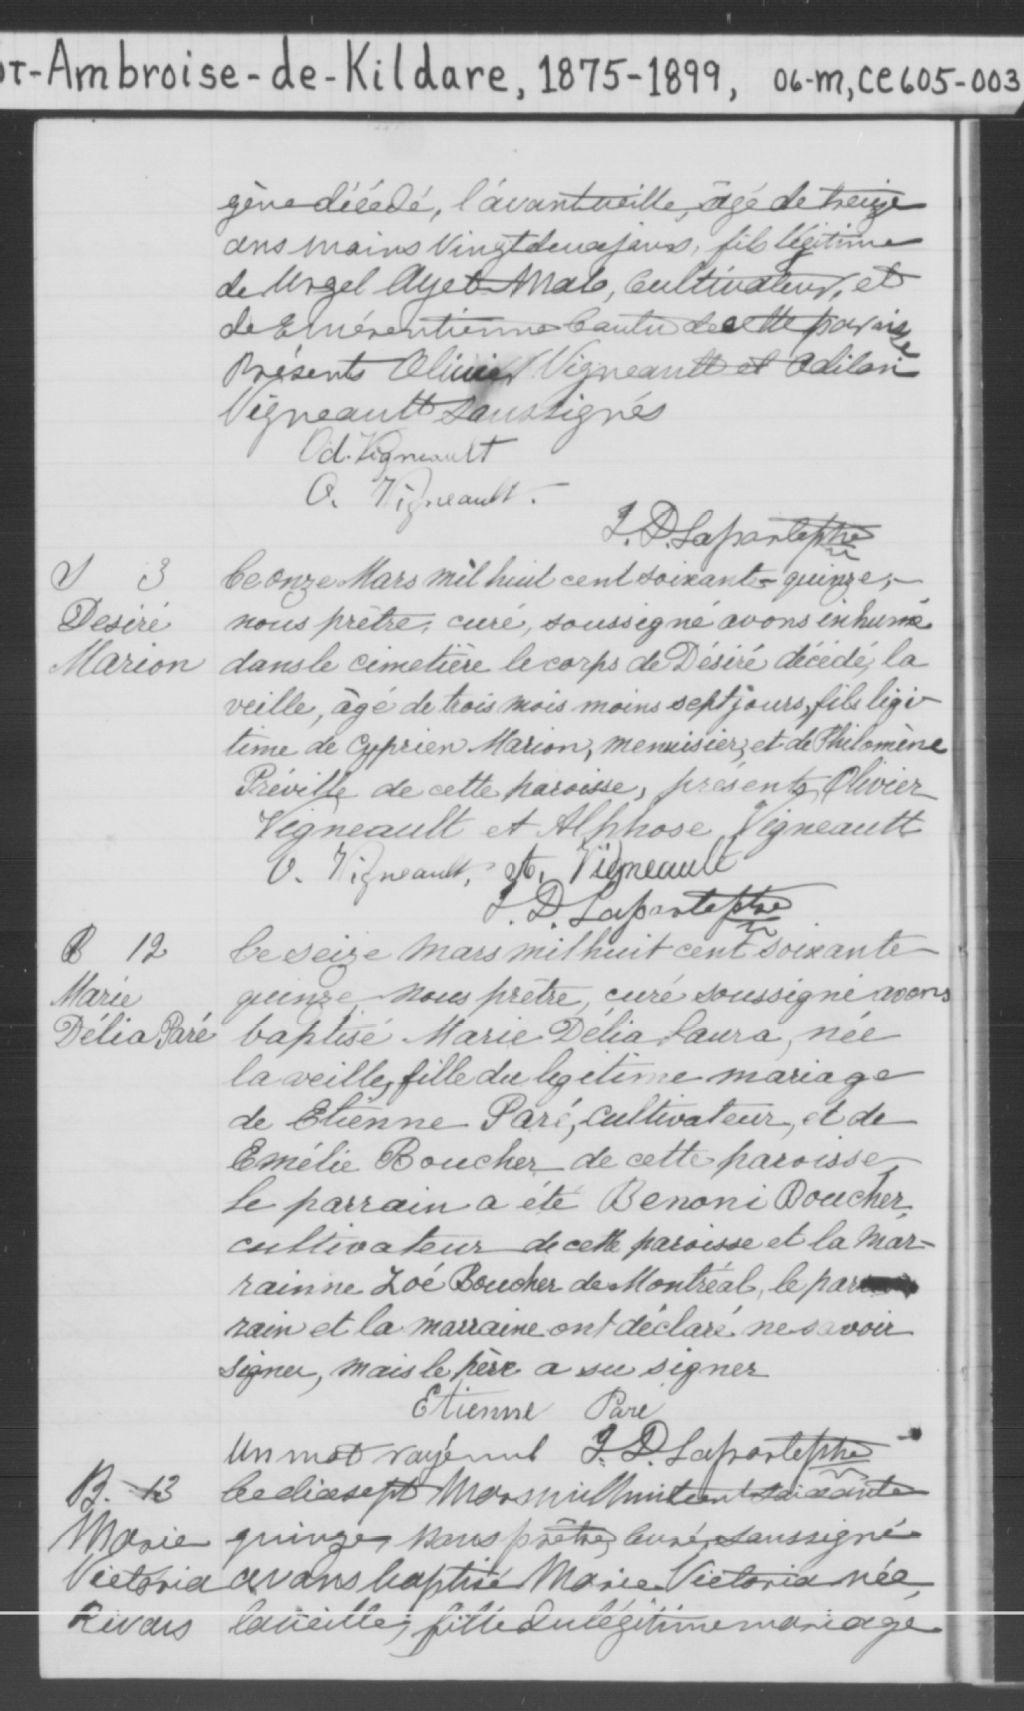 st-Ambroise-de-Kildare, 1875-1899, 06-m, CE605-003
gène décédé, l'avant veille, âgé de treize
ans moins Vingt deux jours, fils légitime
de Urgel Ayet Malo, Cultivateur, et
de Emérentienne Cantu de cette paroisse
Présents Olivier Vigneault et Odilon
Vigneault Soussignés
Od. Vigneault
O. Vigneault.
J. D. Laporte ptre
S 3 Ce onze Mars mil huit cent soixante-quinze,
Desiré nous prêtre, curé, soussigné avons inhumé
Marion dans le cimetière le corps de Désiré décédé, la
veille, âgé de trois mois moins sept jours, fils légi-
time de Cyprien Marion, menuisier, et de Philomène
Préville de cette paroisse, présents, Olivier
Vigneault et Alphose Vigneault
O. Vigneault, A. Vigneault
J. D. Laporte ptre
B 12 Ce seize Mars mil huit cent soixante
Marie quinze nous prêtre, curé soussigné avons
Délia Paré baptisé Marie Délia Laura, née
la veille, fille du legitime mariage
de Etienne Paré, Cultivateur, et de
Emélie Boucher de cette paroisse
Le parrain a été Benoni Boucher,
cultivateur de cette paroisse et la Mar-
rainne Zoé Boucher de Montréal, le par
rain et la marraine ont déclaré ne savoir
signer, mais le père a su signer
Etienne Pare
Un mot rayé nul J. D. Laporte ptre
B. 13 Ce dix sept Mars mil huit cent soixante
Marie quinze, Nous prêtre, Curé, soussigné
Victoria avons baptisé Marie Victoria née
Rivais la veille, fille du légitime mariage